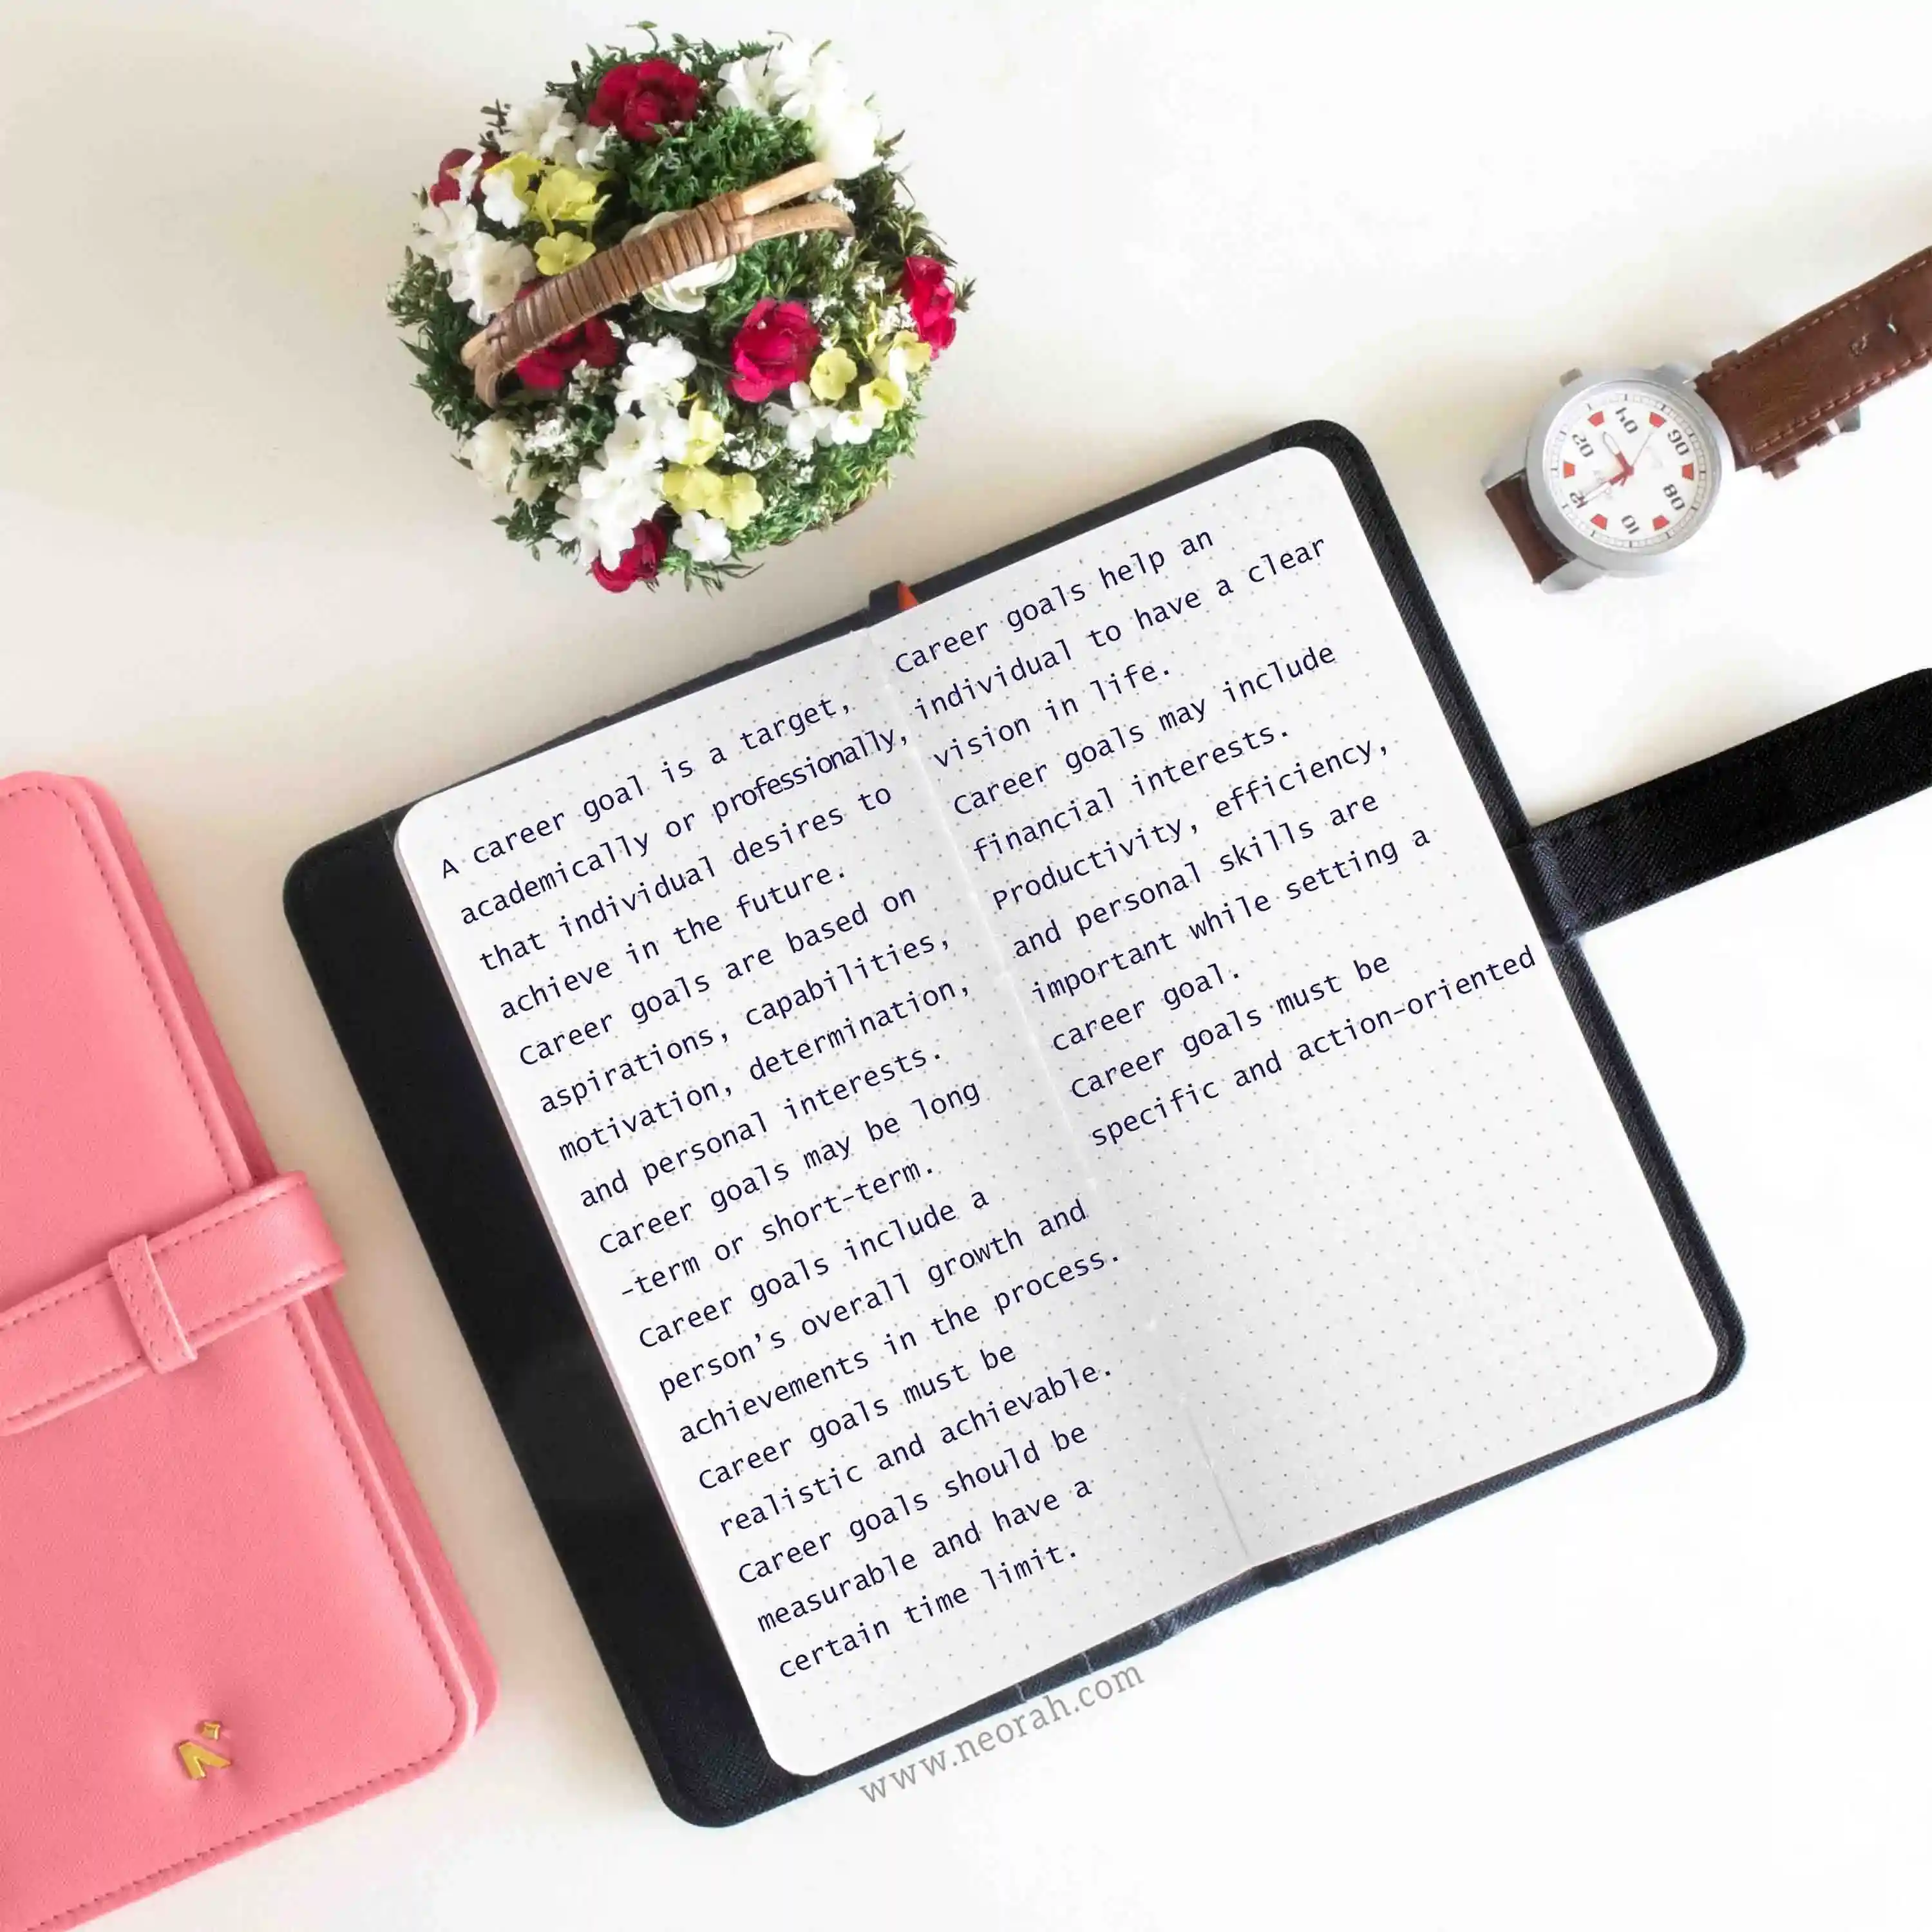 A career goal is a target,
academically or professionally,
that individual desires to
achieve in the future.
Career goals are based on
aspirations, capabilities,
motivation, determination,
and personal interests.
Career goals may be long
-term or short-term.
Career goals include a
person's overall growth and
achievements in the process.
Career goals must be
realistic and achievable.
Career goals should be
measurable and have a
certain time limit.
Career goals help an
individual to have a clear
vision in life.
Career goals may include
financial interests.
Productivity, efficiency,
and personal skills are
important while setting a
career goal.
Career goals must be
specific and action-oriented
04
06
08
10
12
02
N
www.neorah.com